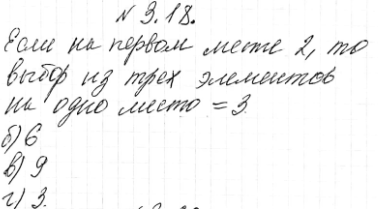 № 3.18.
Если на первом месте 2, то
выбор из трех элементов
на одно место = 3
б) 6
в) 9
г) 3.